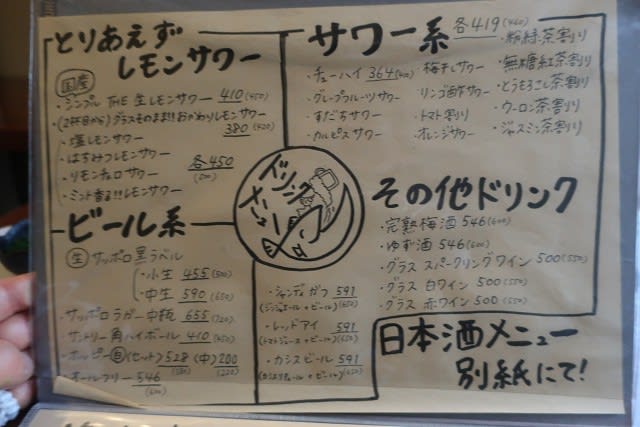 とりあえず
レモンサワー
国産
・シンプル THE 生レモンサワー 410(450)
・(2杯目から)グラスそのまま!!おかわりレモンサワー
380(420)
・塩レモンサワー
・はちみつレモンサワー
・リモンチェロサワー
・ミント香る!!レモンサワー
各450
サワー系 各419(460)
・チューハイ 364(400)
・グレープフルーツサワー
・すだちサワー
・カルピスサワー
・梅干しサワー
・リンゴ酢サワー
・トマト割り
・オレンジサワー
・粉緑茶割り
・無糖紅茶割り
・とうもろこし茶割り
・ウーロン茶割り
・ジャスミン茶割り
ドリンク
メニュー
ビール系
生 サッポロ黒ラベル
・小生 455(500)
・中生 590(650)
・サッポロラガー中瓶 655(720)
・サントリー角ハイボール 410(450)
・ホッピー(セット)528 (中)200
(580) (220)
・オールフリー 546
(600)
・シャンディガフ 591
(ジンジャエール+ビール)(650)
・レッドアイ 591
(トマトジュース+ビール)(650)
・カシスビール 591
(カシスリキュール+ビール)(650)
その他ドリンク
・完熟梅酒 546(600)
・ゆず酒 546(600)
・グラス スパークリングワイン 500(550)
・グラス 白ワイン 500(550)
・グラス 赤ワイン 500(550)
日本酒メニュー
別紙にて!